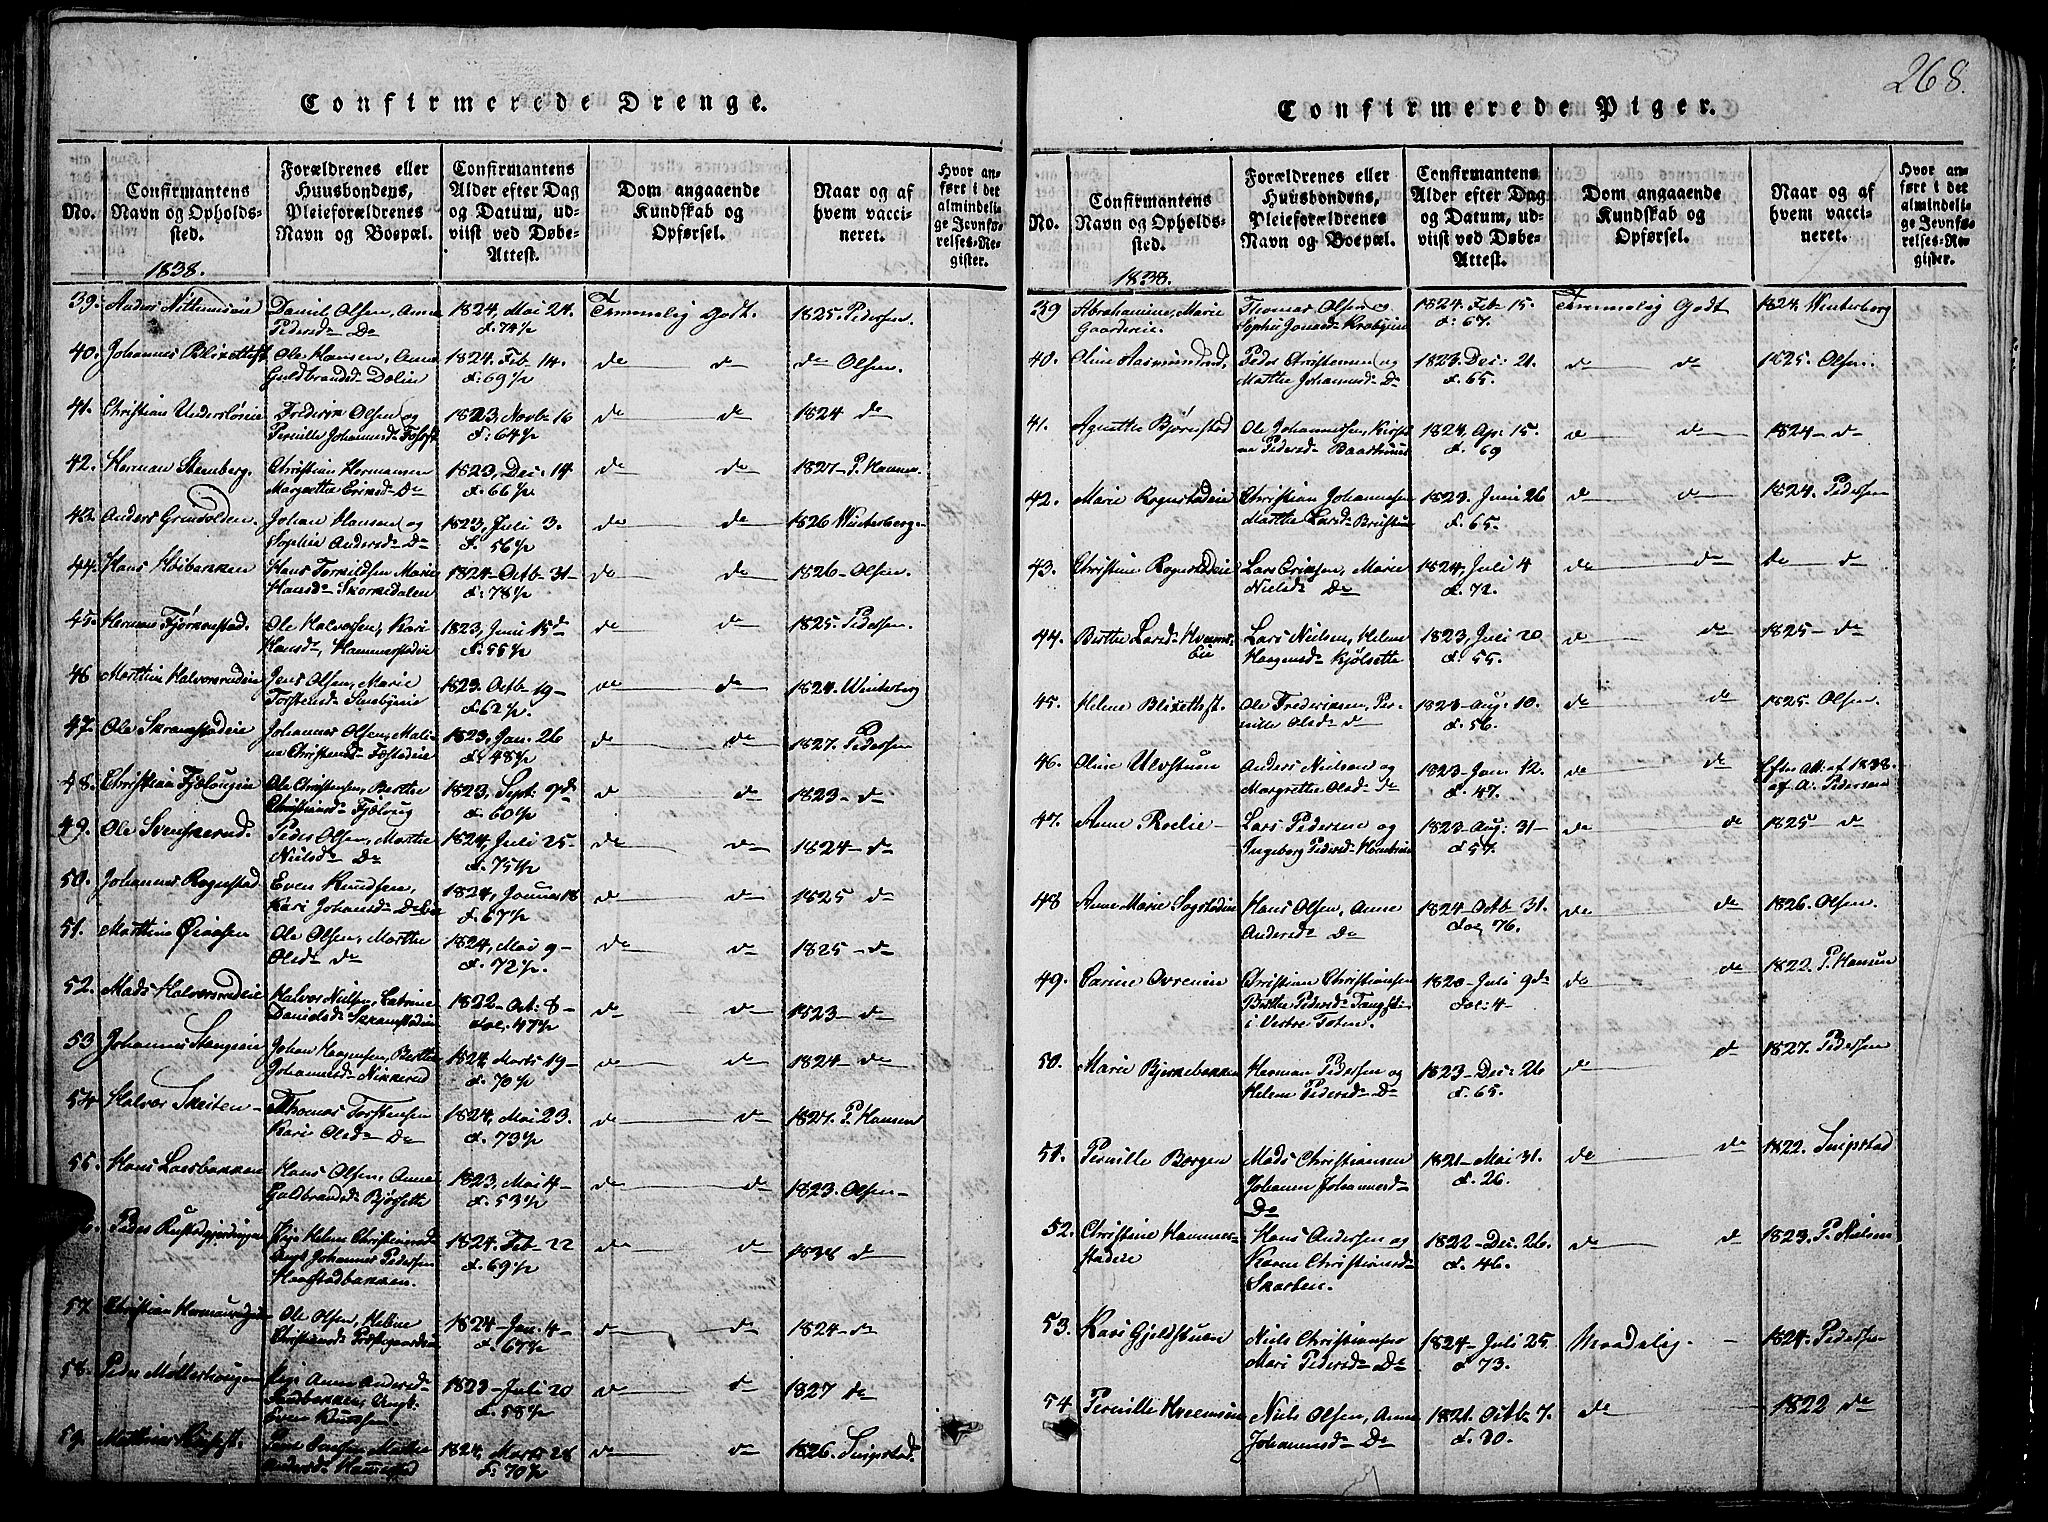 268.
Confirmerede Drenge.
No.
Confirmantens
Navn og Opholds-
sted.
Forældrenes eller
Huusbondens,
Pleieforældrenes
Navn og Boepæl.
Confirmantens
Alder efter Dag
og Datum, ud-
viist ved Døbe-
Attest.
Dom angaaende
Kundskab og
Opførsel.
Naar og af
hvem vacci-
neret.
Hvor an-
ført i det
almindeli-
ge Jevnfø-
relses-Re-
gister.
1838.
39. Anders Daniel Olsen, Anne 1824, Mai 24. Temmelig godt. 1825. Pedersen.
Pedersd. Do f. 74½
40. Johannes Ole Hansen, Anne 1824. Feb. 14. do do do Olsen.
Guldbrandsd. Dælin f. 69½
41. Christian Frederik Olsen og 1823, Novb. 16 do do 1824 do
Pernille Johannesd. f. 64½
42. Herman Stenberg. Christian Hermansen 1823, Dec. 14 do do 1827 P. Hansen.
Margrethe Eriksd. Do f. 66½
43. Anders Johan Hansen og 1823, Juli 3. do do 1826 Winterberg
Sophie Andersd. Do f. 56½
44. Hans Høibakken Hans Torkildsen Marie 1824 Octb. 31 do do 1826 Olsen.
Hansd. Skonkedalen f. 78½
45. Herman Ole Halvorsen, Kari 1823, Juni 15d do do 1825. Pedersen.
Hansd., Hammerstadeie f. 55½
46 Matthias Halvorsrudeie Jens Olsen, Marie 1823. Octb. 19 do do 1824. Winterberg
Torstensd. f. 62½.
47. Ole Skramstadeie Johannes Olsen, Mali- 1823, Jan. 26 do do 1827. Pedersen
ne Christensd. f. 48½
48. Christian Ole Christensen, Berthe 1823, Sept. 9d do do 1823 do
Christiansd. f. 60½
49. Ole Svenskerud. Peder Olsen, Marthe 1824, Juli 25 do do 1824 do
Nielsd. Do f. 75½
50. Johannes Rognstad Even Knudsen, 1824, Januar 18 do do 1825 do
Kari Johansd. Do Eie f. 67½
51. Ole Olsen, Marthe 1824, Mai 9 do do 1825 do
Olsd. do f. 72½.
52. Mads Halvorsrudeie Halvor Nielsen, Catrine 1822 Oct. 8 do do 1823 do
Danielsd. Skramstadeie fol. 47½
53 Johannes Stangeeie Johan Haagensen, Berthe 1824 Marts 19 do do 1824 do
Johannesd. Nikkerud f. 70½
54 Halvor Skeiten Thomas Torstensen 1824, Mai 23. do do 1827. P. Hansen
Kari Olsd. Do f. 73½
55. Hans Laesbakken Hans Olsen, Anne 1823, Mai 4 do do 1823. Olsen
Guldbrandsd. f. 53½
Peder Pige Helene Christiansd. 1824. Feb. 22 do do 1838 do
Johannes Pedersen f. 69½
57. Christian Ole Olsen, Helene 1824 Jan. 4 do do 1824 do
Christiansd. f. 67½
58. Peder Møllerhaugen Pige Anne Andersd. 1823 Juli 20 do do 1827 do
Even Knudsen f. 58½
59. 1824, Marts 28 do do 1826. Snipstad.
f. 70½
Confirmerede Piger.
No.
Confirmantens
Navn og Opholds-
sted.
Forældrenes eller
Huusbondens,
Pleieforældrenes
Navn og Boepæl.
Confirmantens
Alder efter Dag
og Datum, ud-
viist ved Døbe-
Attest.
Dom angaaende
Kundskab og
Opførsel.
Naar og af
hvem vacci-
neret.
Hvor an-
ført i det
almindelig-
ge Jevnfø-
relses-Re-
gister.
1838.
39 Abrahamine Marie Thomas Olsen og 1824. Feb. 15. Temmelig Godt 1824. Winterberg
Gaardereie. Sophie Jonsd. Krabyeie f. 67.
40. Oline Aasmundrud. Peder Christensen og 1823. Dec. 21. do do 1825. Olsen.
Marthe Johannesd. Do f. 65.
41. Agnethe Bjørnstad Ole Johannessen, Kirsti- 1824, Ap. 15. do do 1824 do
ne Pedersd. f. 69
42. Marie Rognstadeie Christian Johannesen 1823. Juni 26 do do 1824. Pedersen
Marthe Larsd. f. 65.
43. Christine Rognstadeie Lars Eriksen, Marie 1824, Juli 4 do do do do
Nielsd. Do f. 72.
44. Berthe Larsd. Hveems Lars Nielsen, Helene 1823, Juli 20 do do 1825 do
Eie Haagensd. Kjølsette f. 55.
45. Helene Ole Frederiksen, Per- 1823 Aug. 10. do do 1825. Olsen.
nille Olsd. do f. 56.
46. Oline Ulvstuen Anders Nielsen og 1823 Jan. 12. do do Efter Att. af 1838.
Margrethe Olsd. do f. 47. af A. Pedersen
47. Anne Roelie Lars Pedersen og 1823 Aug. 31 do do 1825 do
Ingeborg Pedersd. f. 57.
48 Anne Marie Sogstadeie Hans Olsen, Anne 1824 Octb. 31. do do 1826. Olsen.
Andersd. Do fol 76.
49. Carine Ovreneie Christian Christiansen 1820 Juli 9d do do 1822. P. Hansen
Berthe Pedersd. fol. 4
i Vestre Toten.
50. Marie Bjerkebakken Herman Pedersen og 1823 Dec. 26 do do 1827. Pedersen
Helene Pedersd. Do f. 65.
51. Pernille Borgen Mads Christiansen 1821 Mai 31. do do 1822. Snipstad
Johanne Johannesd. f. 26.
Do
52. Christine Hammer- Hans Andersen og 1822 Dec. 26. do do 1823. P. Nielsen
stadeie Karen Christiansd. f. 46.
Skarben.
53. Kari Gjeldstuen Niels Christiansen 1824 Juli 25 Maadelig. 1824. Pedersen
Mari Pedersd. Do f 73.
54 Pernille Hveemseie Niels Olsen, Anne 1821. Octb. 7. do do 1822 do
Johannesd. Do f. 30.